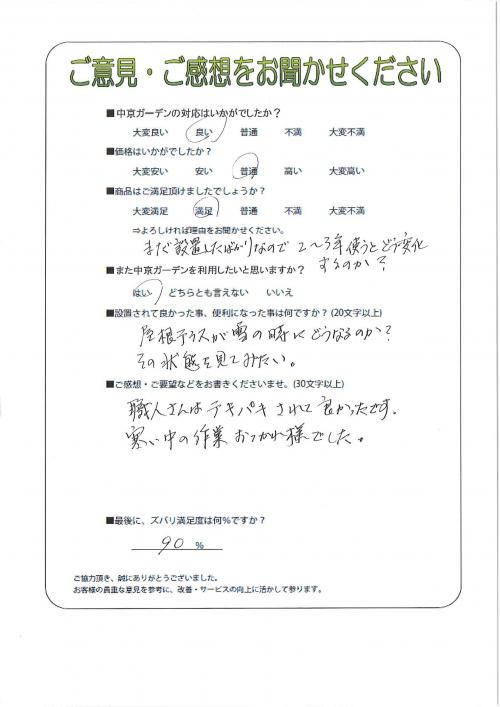 ご意見・ご感想をお聞かせください
■中京ガーデンの対応はいかがでしたか？
大変良い 良い 普通 不満 大変不満
■価格はいかがでしたか？
大変安い 安い 普通 高い 大変高い
■商品はご満足頂けましたでしょうか？
大変満足 満足 普通 不満 大変不満
⇒よろしければ理由をお聞かせください。
まだ設置したばかりなので 2〜3年使うとどう変化
するのか？
■また中京ガーデンを利用したいと思いますか？
はい どちらとも言えない いいえ
■設置されて良かった事、便利になった事は何ですか？(20文字以上)
屋根テラスが雪の時にどうなるのか？
その状態を見てみたい。
■ご感想・ご要望などをお書きくださいませ。(30文字以上)
職人さんはテキパキされて良かったです。
寒い中の作業おつかれ様でした。
■最後に、ズバリ満足度は何％ですか？
90 %
ご協力頂き、誠にありがとうございました。
お客様の貴重な意見を参考に、改善・サービスの向上に活かして参ります。